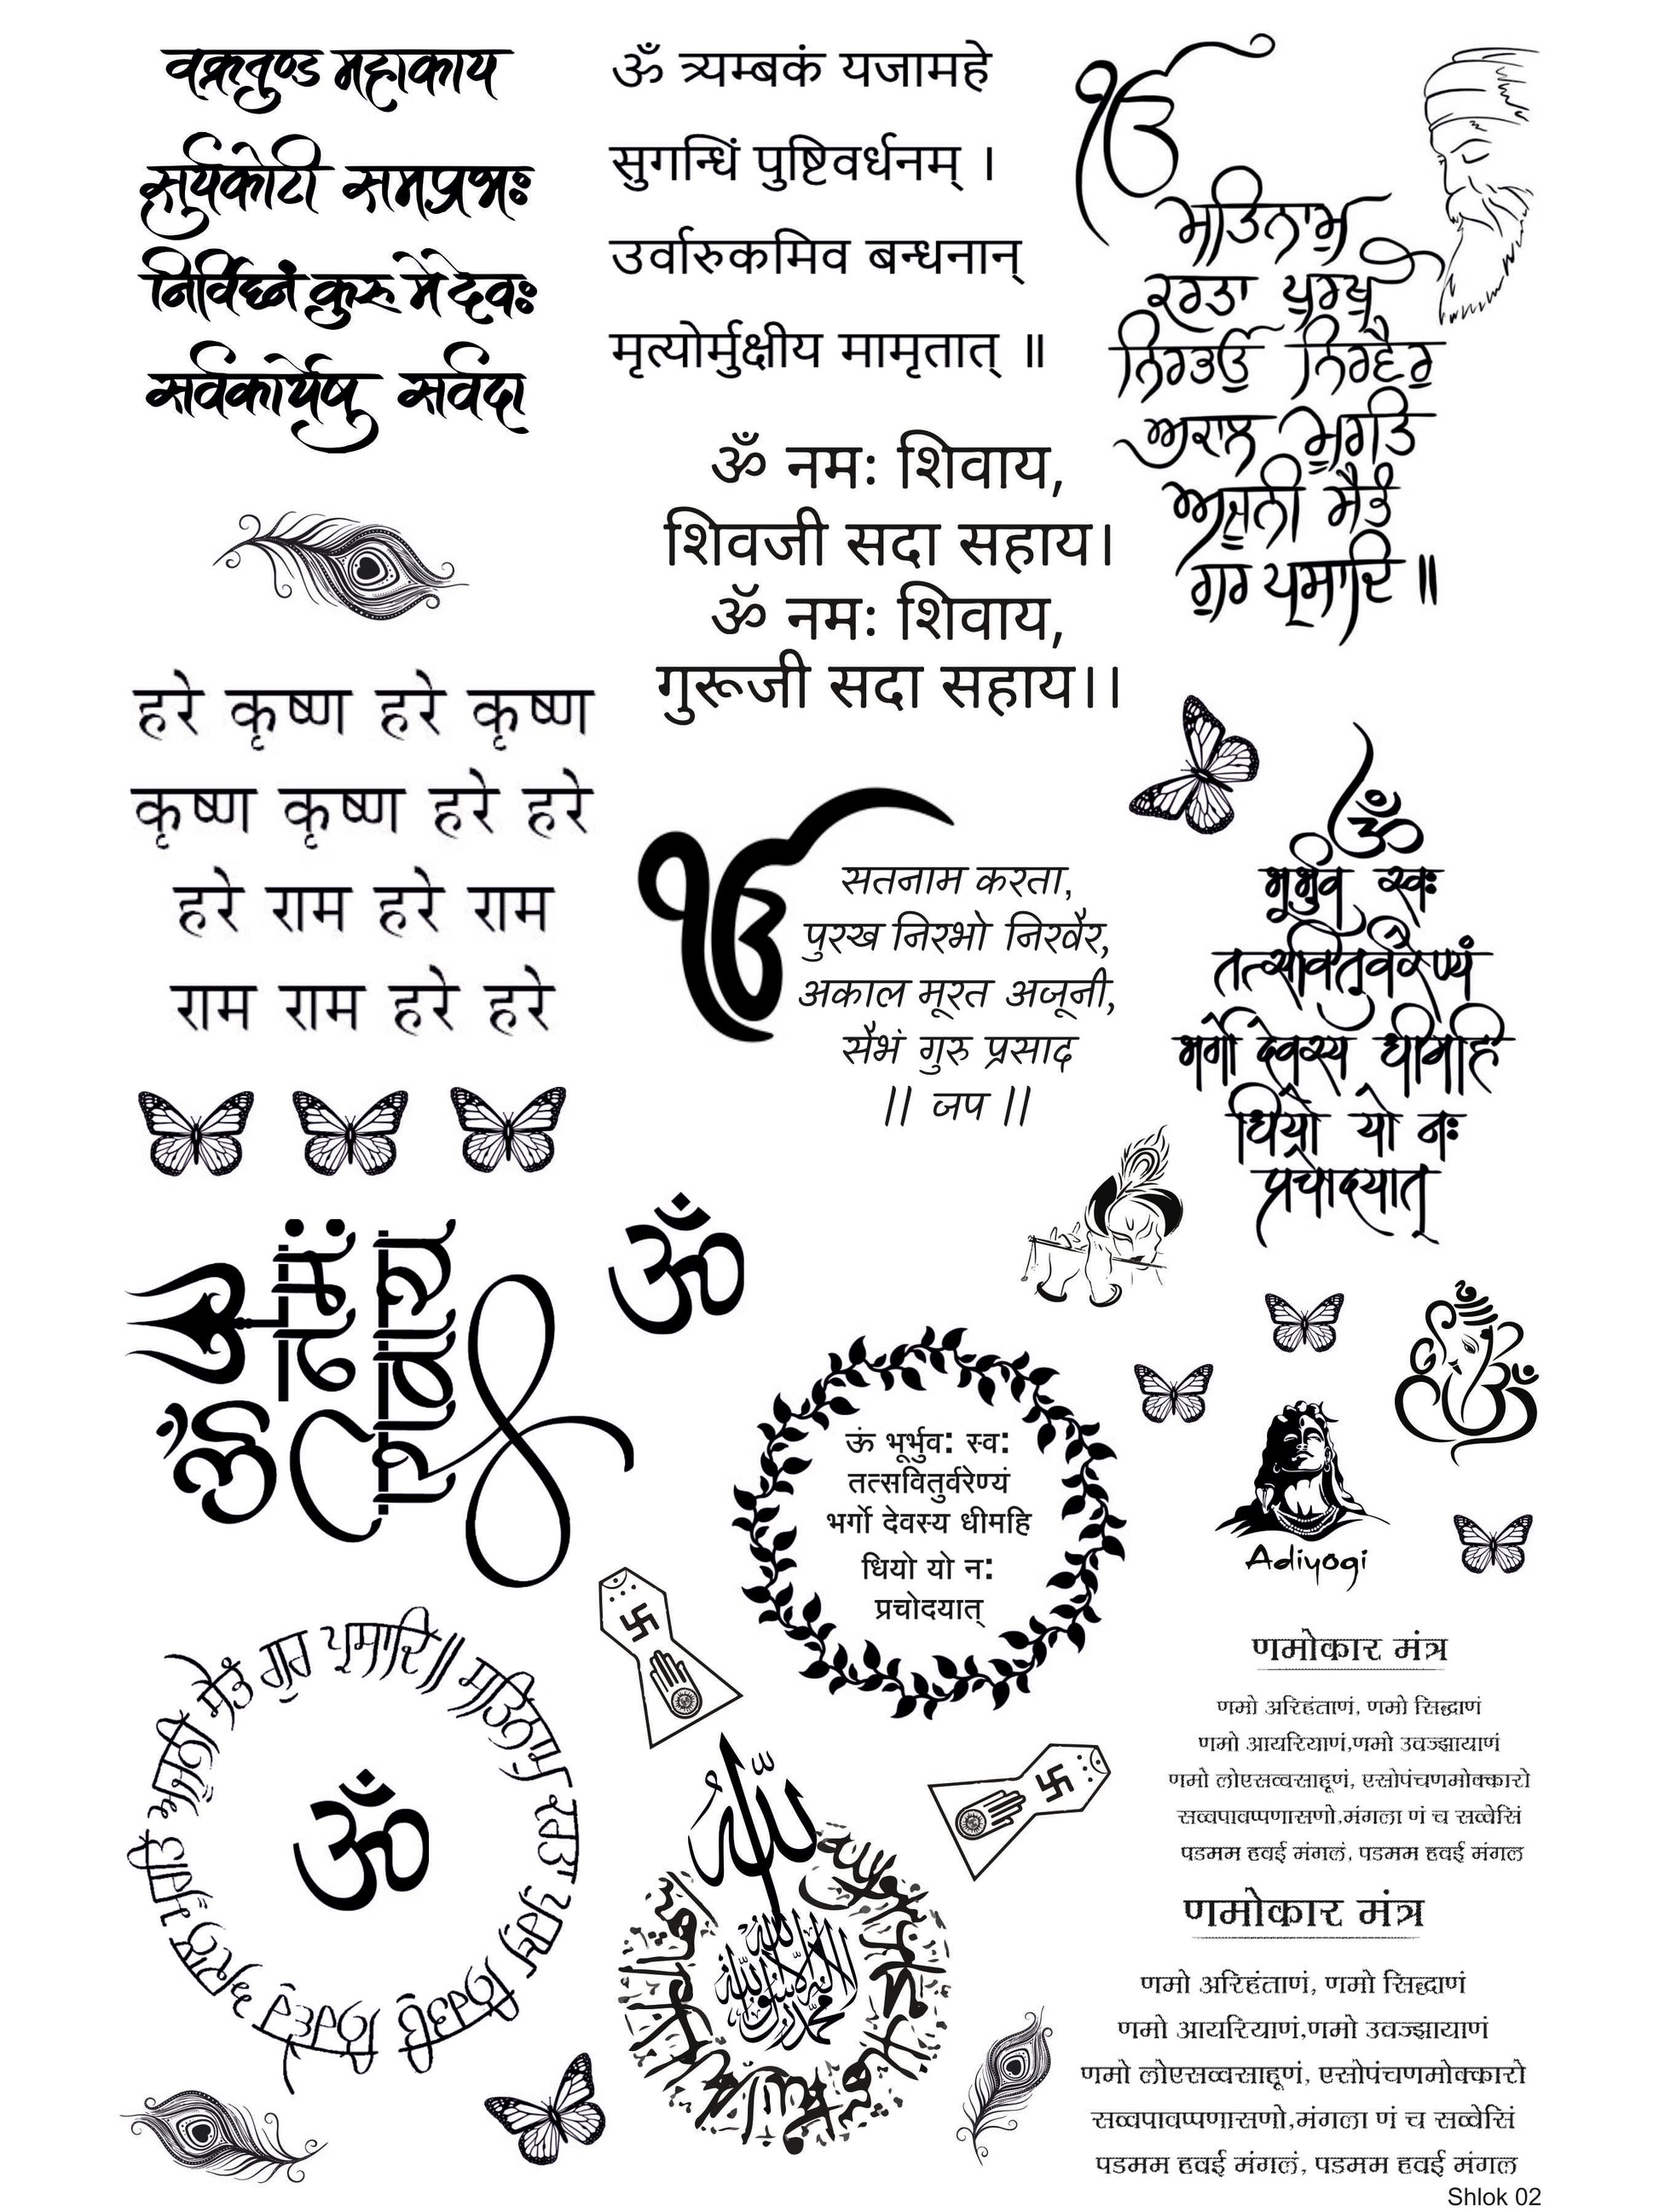 वक्रतुण्ड महाकाय
सुर्यकोटी समप्रभः
निर्विघ्नं कुरु मे देवः
सर्वकार्येषु सर्वदा
ॐ त्र्यम्बकं यजामहे
सुगन्धिं पुष्टिवर्धनम् ।
उर्वारुकमिव बन्धनान्
मृत्योर्मुक्षीय मामृतात् ॥
ੴ
ਸਤਿਨਾਮੁ
ਕਰਤਾ ਪੁਰਖੁ
ਨਿਰਭਉ ਨਿਰਵੈਰੁ
ਅਕਾਲ ਮੂਰਤਿ
ਅਜੂਨੀ ਸੈਭੰ
ਗੁਰ ਪ੍ਰਸਾਦਿ ॥
ॐ नमः शिवाय,
शिवजी सदा सहाय।
ॐ नमः शिवाय,
गुरूजी सदा सहाय।।
हरे कृष्ण हरे कृष्ण
कृष्ण कृष्ण हरे हरे
हरे राम हरे राम
राम राम हरे हरे
ੴ
सतनाम करता,
पुरख निरभो निरवैर,
अकाल मूरत अजूनी,
सैभं गुरु प्रसाद
।। जप ।।
ॐ
भूर्भुव स्वः
तत्सवितुर्वरेण्यं
भर्गो देवस्य धीमहि
धियो यो नः
प्रचोदयात्
ॐ नमः
शिवाय
ॐ
ॐ
ऊं भूर्भुव: स्व:
तत्सवितुर्वरेण्यं
भर्गो देवस्य धीमहि
धियो यो न:
प्रचोदयात्
Adiyogi
ਸਤਿਨਾਮੁ ਕਰਤਾ ਪੁਰਖੁ ਨਿਰਭਉ ਨਿਰਵੈਰੁ ਅਕਾਲ ਮੂਰਤਿ ਅਜੂਨੀ ਸੈਭੰ ਗੁਰ ਪ੍ਰਸਾਦਿ ॥
ॐ
الله
لا اله الا الله محمد رسول الله
णमोकार मंत्र
णमो अरिहंताणं, णमो सिद्धाणं
णमो आयरियाणं,णमो उवज्झायाणं
णमो लोएसव्वसाहूणं, एसोपंचणमोक्कारो
सव्वपावप्पणासणो,मंगला णं च सव्वेसिं
पडमम हवई मंगलं, पडमम हवई मंगल
णमोकार मंत्र
णमो अरिहंताणं, णमो सिद्धाणं
णमो आयरियाणं,णमो उवज्झायाणं
णमो लोएसव्वसाहूणं, एसोपंचणमोक्कारो
सव्वपावप्पणासणो,मंगला णं च सव्वेसिं
पडमम हवई मंगलं, पडमम हवई मंगल
Shlok 02